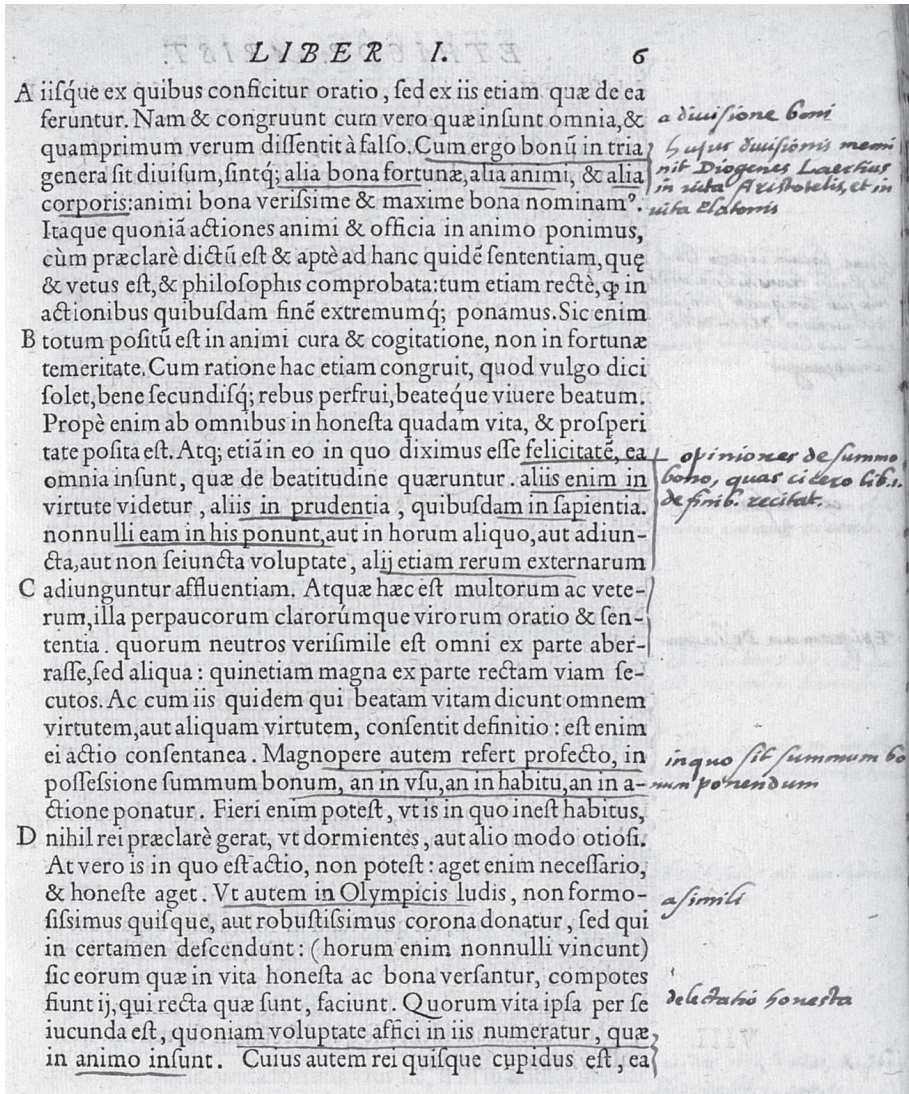 LIBER I. 6
A iiſq́ue ex quibus conficitur oratio, ſed ex iis etiam quæ de ea
feruntur. Nam & congruunt cum vero quæ inſunt omnia, &
quamprimum verum diſſentit à falſo. Cum ergo bonū in tria
genera ſit diuiſum, ſintq́; alia bona fortunæ, alia animi, & alia
corporis: animi bona veriſſime & maxime bona nominamꝰ.
Itaque quoniā actiones animi & officia in animo ponimus,
cùm præclarè dictū eſt & aptè ad hanc quidē ſententiam, quę
& vetus eſt, & philoſophis comprobata: tum etiam rectè, ꝙ in
actionibus quibuſdam finē extremumq́; ponamus. Sic enim
B totum poſitū eſt in animi cura & cogitatione, non in fortunæ
temeritate. Cum ratione hac etiam congruit, quod vulgo dici
ſolet, bene ſecundiſq́; rebus perfrui, beateq́ue viuere beatum.
Propè enim ab omnibus in honeſta quadam vita, & proſperi
tate poſita eſt. Atq; etiā in eo in quo diximus eſſe felicitatē, ea
omnia inſunt, quæ de beatitudine quæruntur. aliis enim in
virtute videtur, aliis in prudentia, quibuſdam in ſapientia.
nonnulli eam in his ponunt, aut in horum aliquo, aut adiun-
cta, aut non ſeiuncta voluptate, alij etiam rerum externarum
C adiunguntur affluentiam. Atquæ hæc eſt multorum ac vete-
rum, illa perpaucorum clarorúmque virorum oratio & ſen-
tentia. quorum neutros veriſimile eſt omni ex parte aber-
raſſe, ſed aliqua: quinetiam magna ex parte rectam viam ſe-
cutos. Ac cum iis quidem qui beatam vitam dicunt omnem
virtutem, aut aliquam virtutem, conſentit definitio: eſt enim
ei actio conſentanea. Magnopere autem refert profecto, in
poſſeſſione ſummum bonum, an in vſu, an in habitu, an in a-
ctione ponatur. Fieri enim poteſt, vt is in quo ineſt habitus,
D nihil rei præclarè gerat, vt dormientes, aut alio modo otioſi.
At vero is in quo eſt actio, non poteſt: aget enim neceſſario,
& honeſte aget. Vt autem in Olympicis ludis, non formo-
ſiſſimus quiſque, aut robuſtiſſimus corona donatur, ſed qui
in certamen deſcendunt: (horum enim nonnulli vincunt)
ſic eorum quæ in vita honeſta ac bona verſantur, compotes
fiunt ij, qui recta quæ ſunt, faciunt. Quorum vita ipſa per ſe
iucunda eſt, quoniam voluptate affici in iis numeratur, quæ
in animo inſunt. Cuius autem rei quiſque cupidus eſt, ea
a diuisione boni
hujus diuisionis memi
nit Diogenes Laertius
in uita Aristotelis, et in
uita Platonis
opiniones de summo
bono, quas cicero lib. 1.
de finib. recitat.
in quo sit summum bo
num ponendum
a simili
delectatio honesta